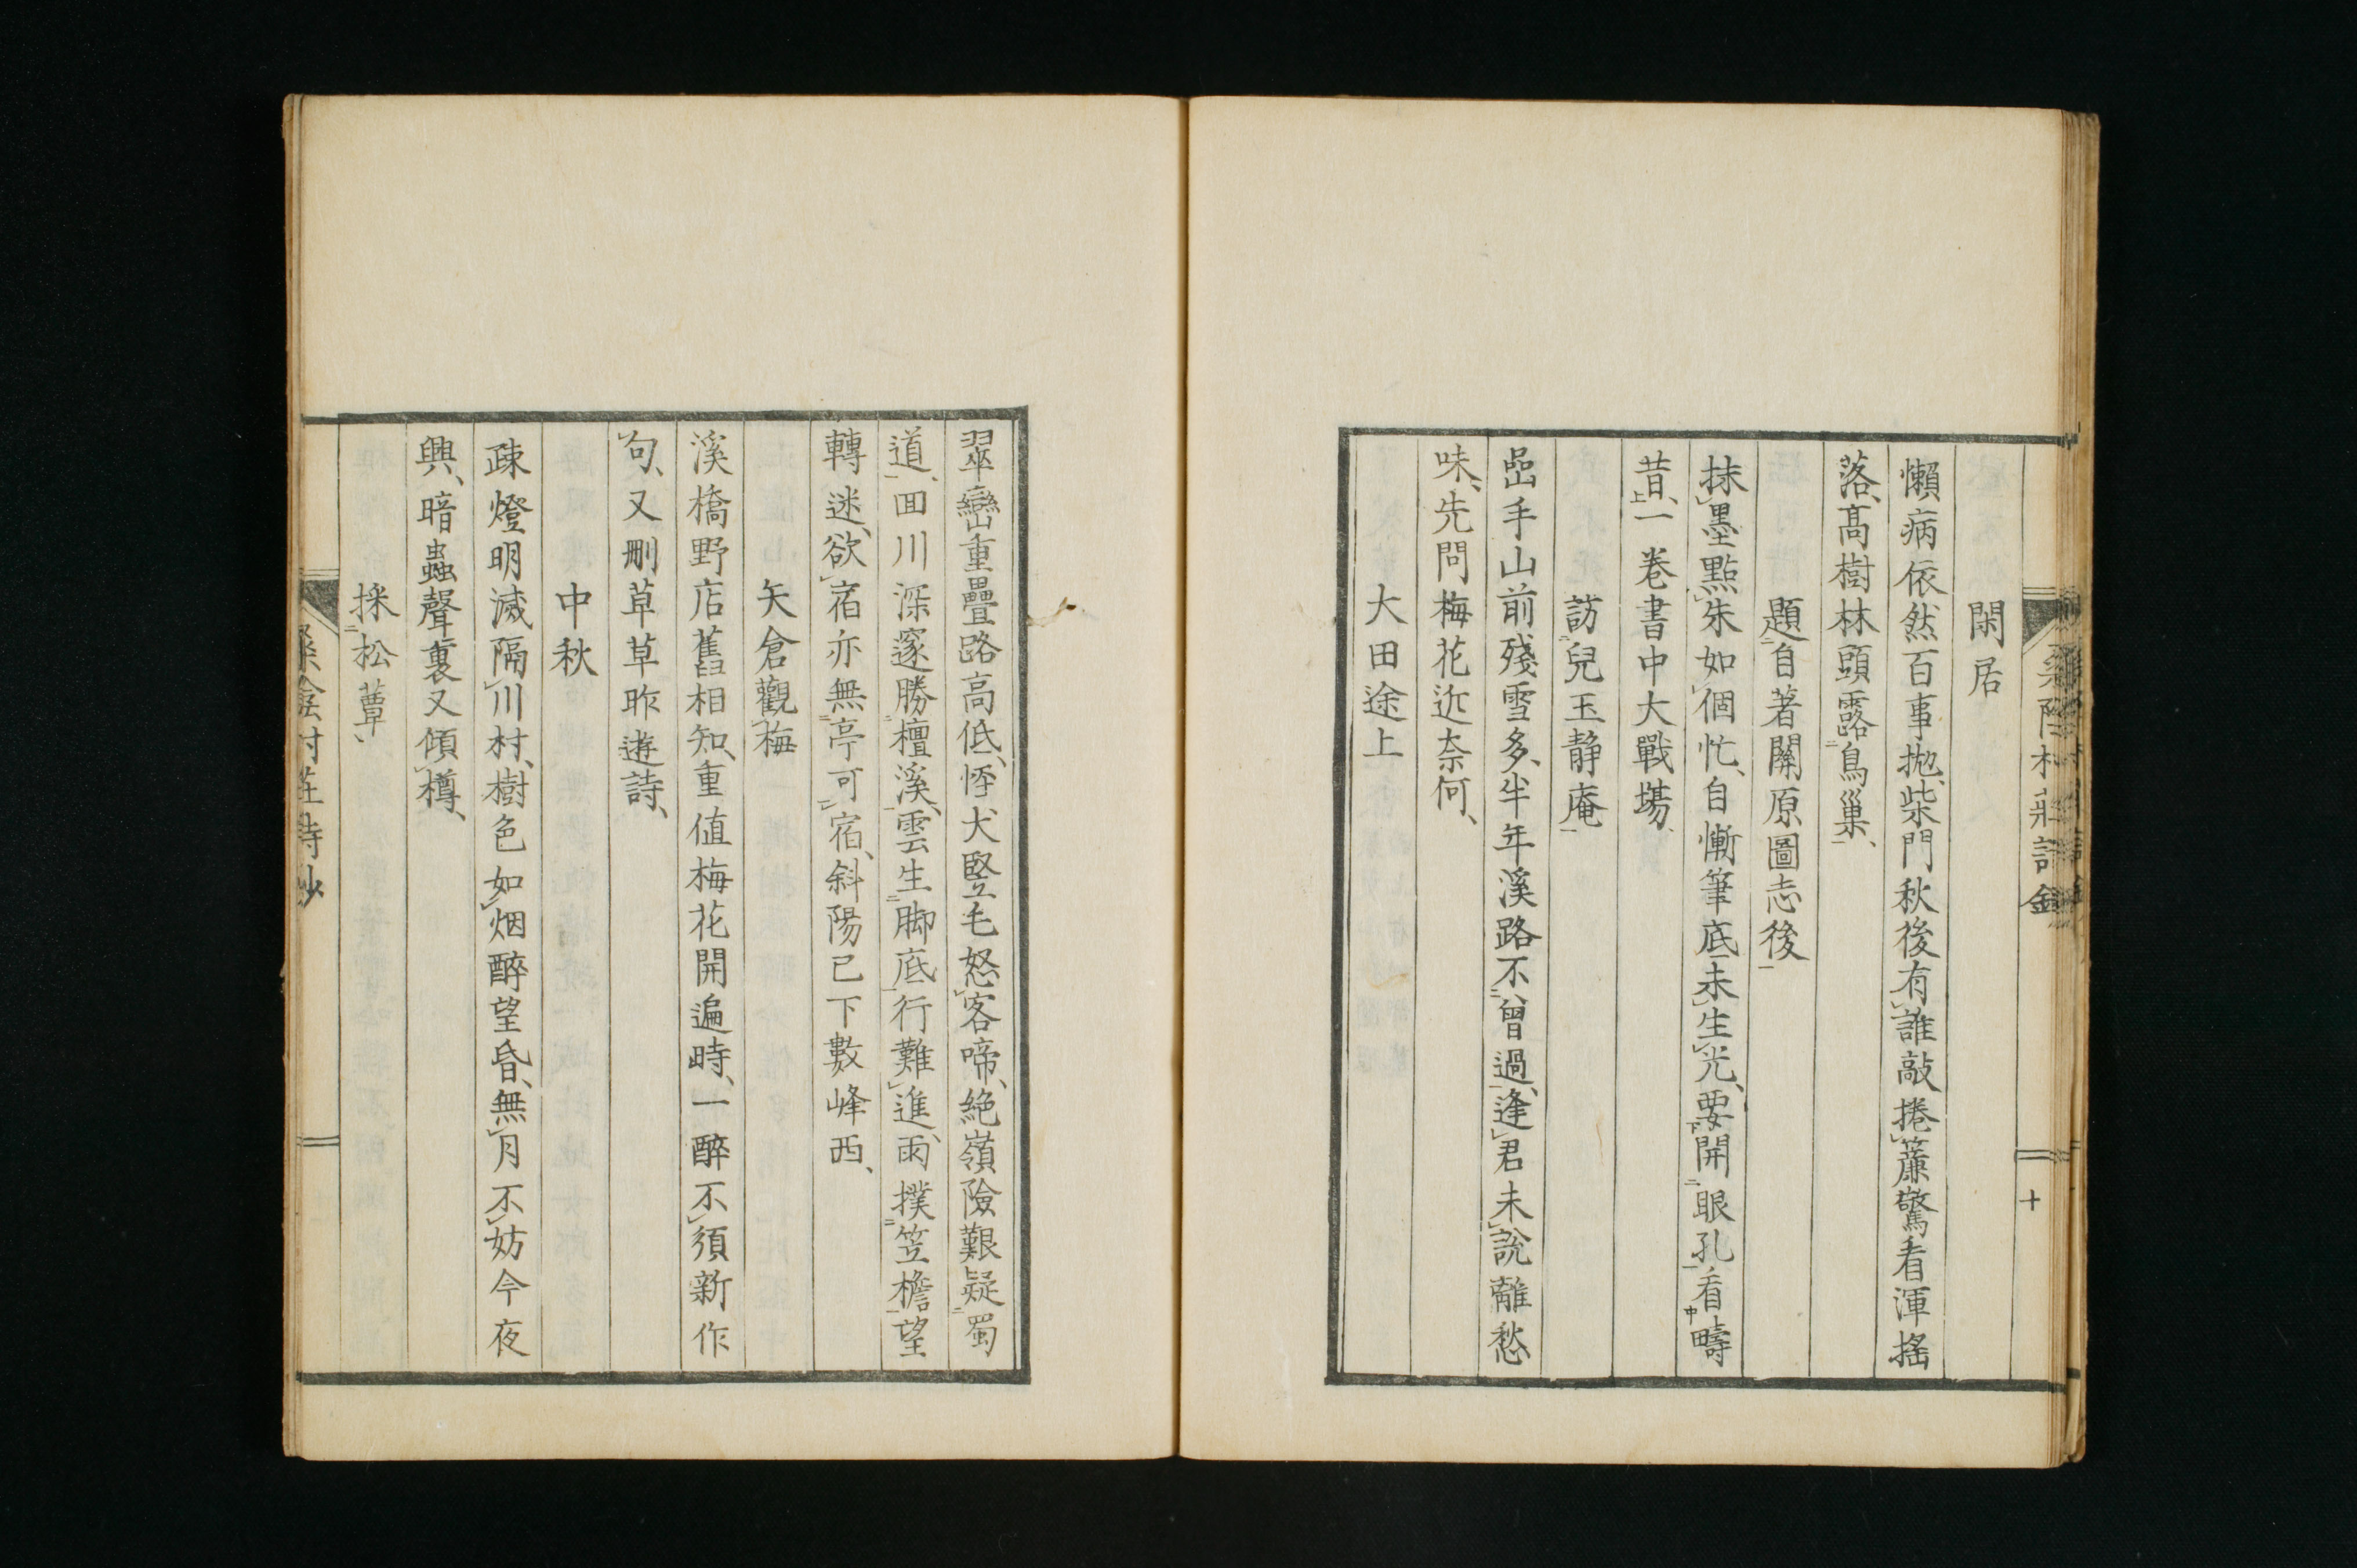 閑居
懶病依然百事抛、柴門秋後有誰敲、捲簾驚看渾搖
落、高樹林頭露鳥巢、
題自著關原圖志後
抹墨點朱如個忙、自慚筆底未生光、要開眼孔看疇
昔、一卷書中大戰場、
訪兒玉静庵
嵒手山前殘雪多、半年溪路不曾過、逢君未説離愁
味、先問梅花近奈何、
大田途上
十
翠巒重疊路高低、怪犬豎毛怒客啼、絶嶺險艱疑蜀
道、回川深邃勝檀溪、雲生脚底行難進、雨撲笠檐望
轉迷、欲宿亦無亭可宿、斜陽已下數峰西、
矢倉觀梅
溪橋野店舊相知、重値梅花開遍時、一醉不須新作
句、又刪草草昨遊詩、
中秋
疎燈明滅隔川村、樹色如烟醉望昏、無月不妨今夜
興、暗蟲聲裏又傾樽、
採松蕈